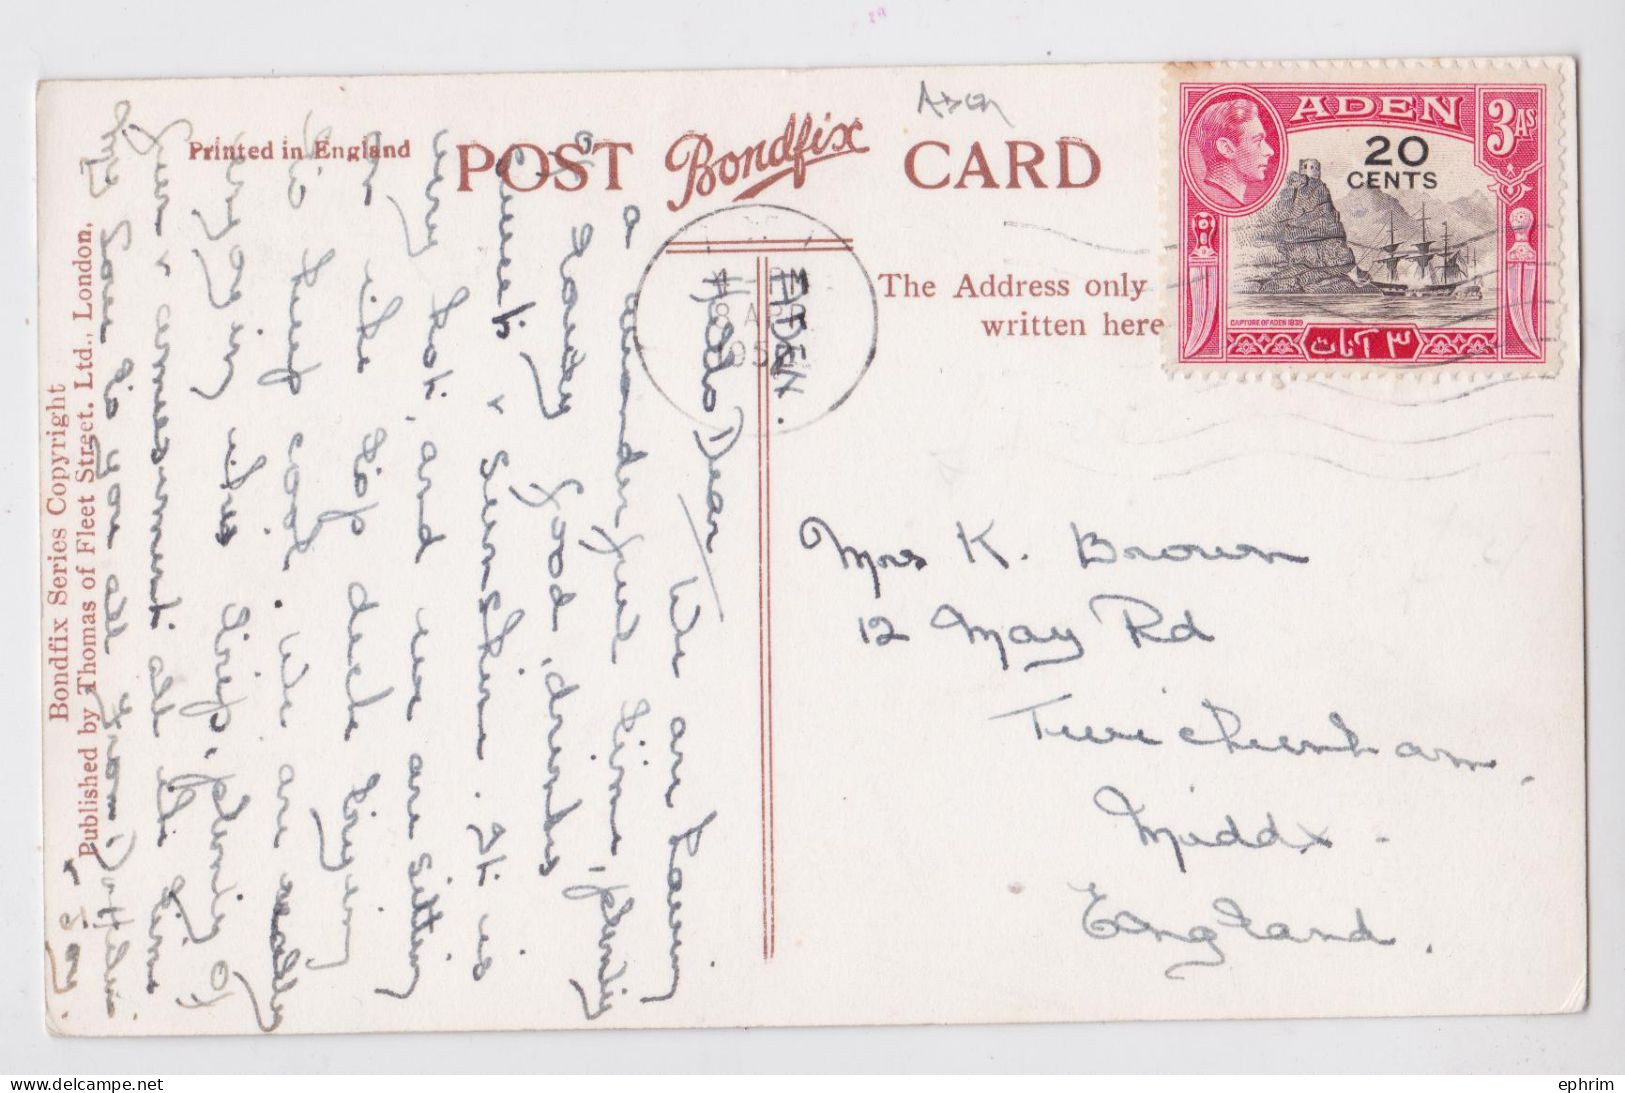 Aden
Printed in England
POST Bondfix CARD
ADEN
3 AS
20
CENTS
CAPTURE OF ADEN 1839
٣ آنات
4 - PM
8 APR
195
ADEN
The Address only
written here
Bondfix Series Copyright
Published by Thomas of Fleet Street. Ltd., London.
Hello Dear
We are having
a wonderful time, plenty
of lovely food, drinks
sweets & sunshine. It is
very hot, and we are sitting
on the top deck trying
to keep cool. We are really
enjoying this trip, plenty of
fun & amusement all the time
my love to you all from Dot & Jim
Mrs K. Brown
12 May Rd
Twickenham,
Middx -
England.
ephrim